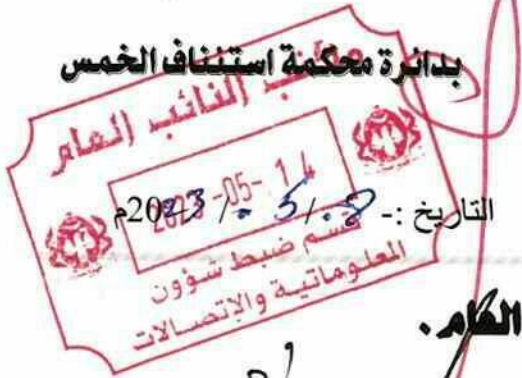 بدائرة محكمة استئناف الخمس
مكتب النائب العام
2023-05-14
التاريخ :- 2023/5/08م
قسم ضبط شؤون
المعلوماتية والاتصالات
العام.